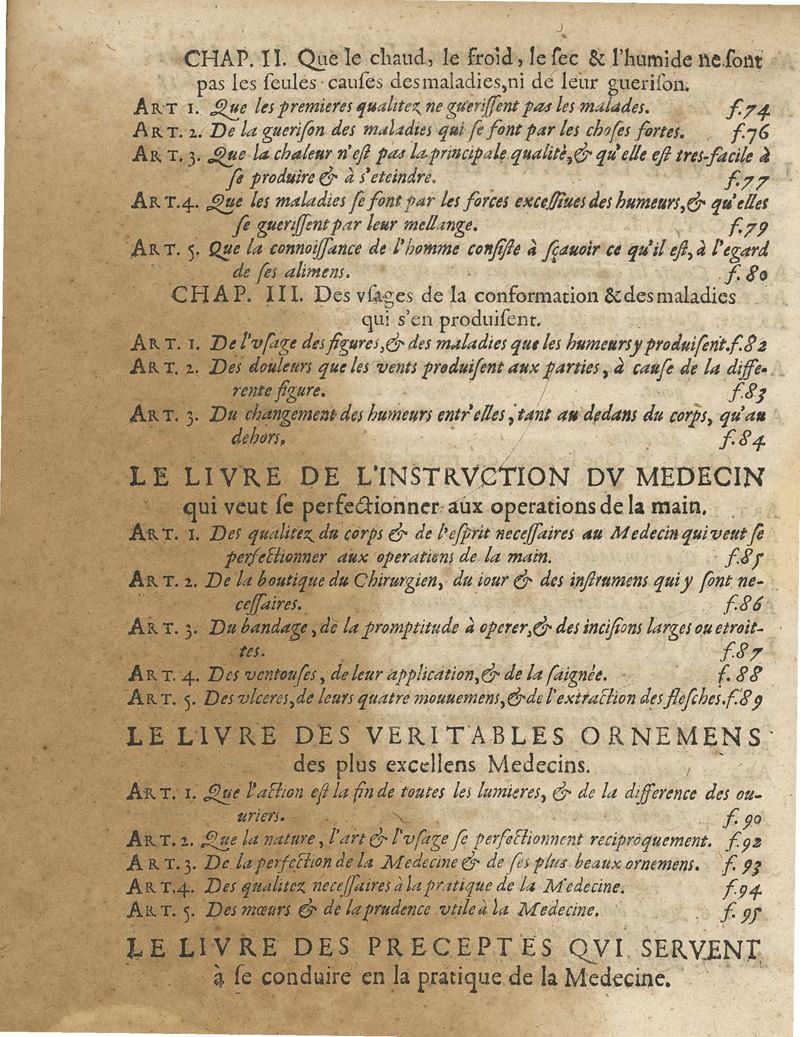 CHAP. II. Que le chaud, le froid, le ſec & l'humide ne ſont
pas les ſeules cauſes des maladies, ni de leur gueriſon.
ART 1. Que les premieres qualitez ne gueriſſent pas les malades. f.74
ART. 2. De la gueriſon des maladies qui ſe font par les choſes fortes. f.76
ART. 3. Que la chaleur n'eſt pas la principale qualité, & qu'elle eſt tres-facile à
ſe produire & à s'eteindre. f.77
ART.4. Que les maladies ſe font par les forces exceſſiues des humeurs, & qu'elles
ſe gueriſſent par leur mellange. f.79
ART. 5. Que la connoiſſance de l'homme conſiſte à ſçauoir ce qu'il eſt, à l'egard
de ſes alimens. f.80
CHAP. III. Des vſages de la conformation & des maladies
qui s'en produiſent.
ART. 1. De l'vſage des figures, & des maladies que les humeurs y produiſent. f.82
ART. 2. Des douleurs que les vents produiſent aux parties, à cauſe de la diffe-
rente figure. f.83
ART. 3. Du changement des humeurs entr'elles, tant au dedans du corps, qu'au
dehors, f.84
LE LIVRE DE L'INSTRVCTION DV MEDECIN
qui veut ſe perfectionner aux operations de la main.
ART. 1. Des qualitez du corps & de l'eſprit neceſſaires au Medecin qui veut ſe
perfectionner aux operations de la main. f.85
ART. 2. De la boutique du Chirurgien, du iour & des inſtrumens qui y ſont ne-
ceſſaires. f.86
ART. 3. Du bandage, de la promptitude à operer, & des inciſions larges ou etroit-
tes. f.87
ART. 4. Des ventouſes, de leur application, & de la ſaignée. f. 88
ART. 5. Des vlceres, de leurs quatre mouuemens, & de l'extraction des fleſches. f.89
LE LIVRE DES VERITABLES ORNEMENS
des plus excellens Medecins.
ART. 1. Que l'action eſt la fin de toutes les lumieres, & de la difference des ou-
uriers. f.90
ART. 2. Que la nature, l'art & l'vſage ſe perfectionnent reciproquement. f.92
ART. 3. De la perfection de la Medecine & de ſes plus beaux ornemens. f. 93
ART.4. Des qualitez neceſſaires à la pratique de la Medecine. f.94
ART. 5. Des mœurs & de la prudence vtile à la Medecine. f. 95
LE LIVRE DES PRECEPTES QVI SERVENT
à ſe conduire en la pratique de la Medecine.